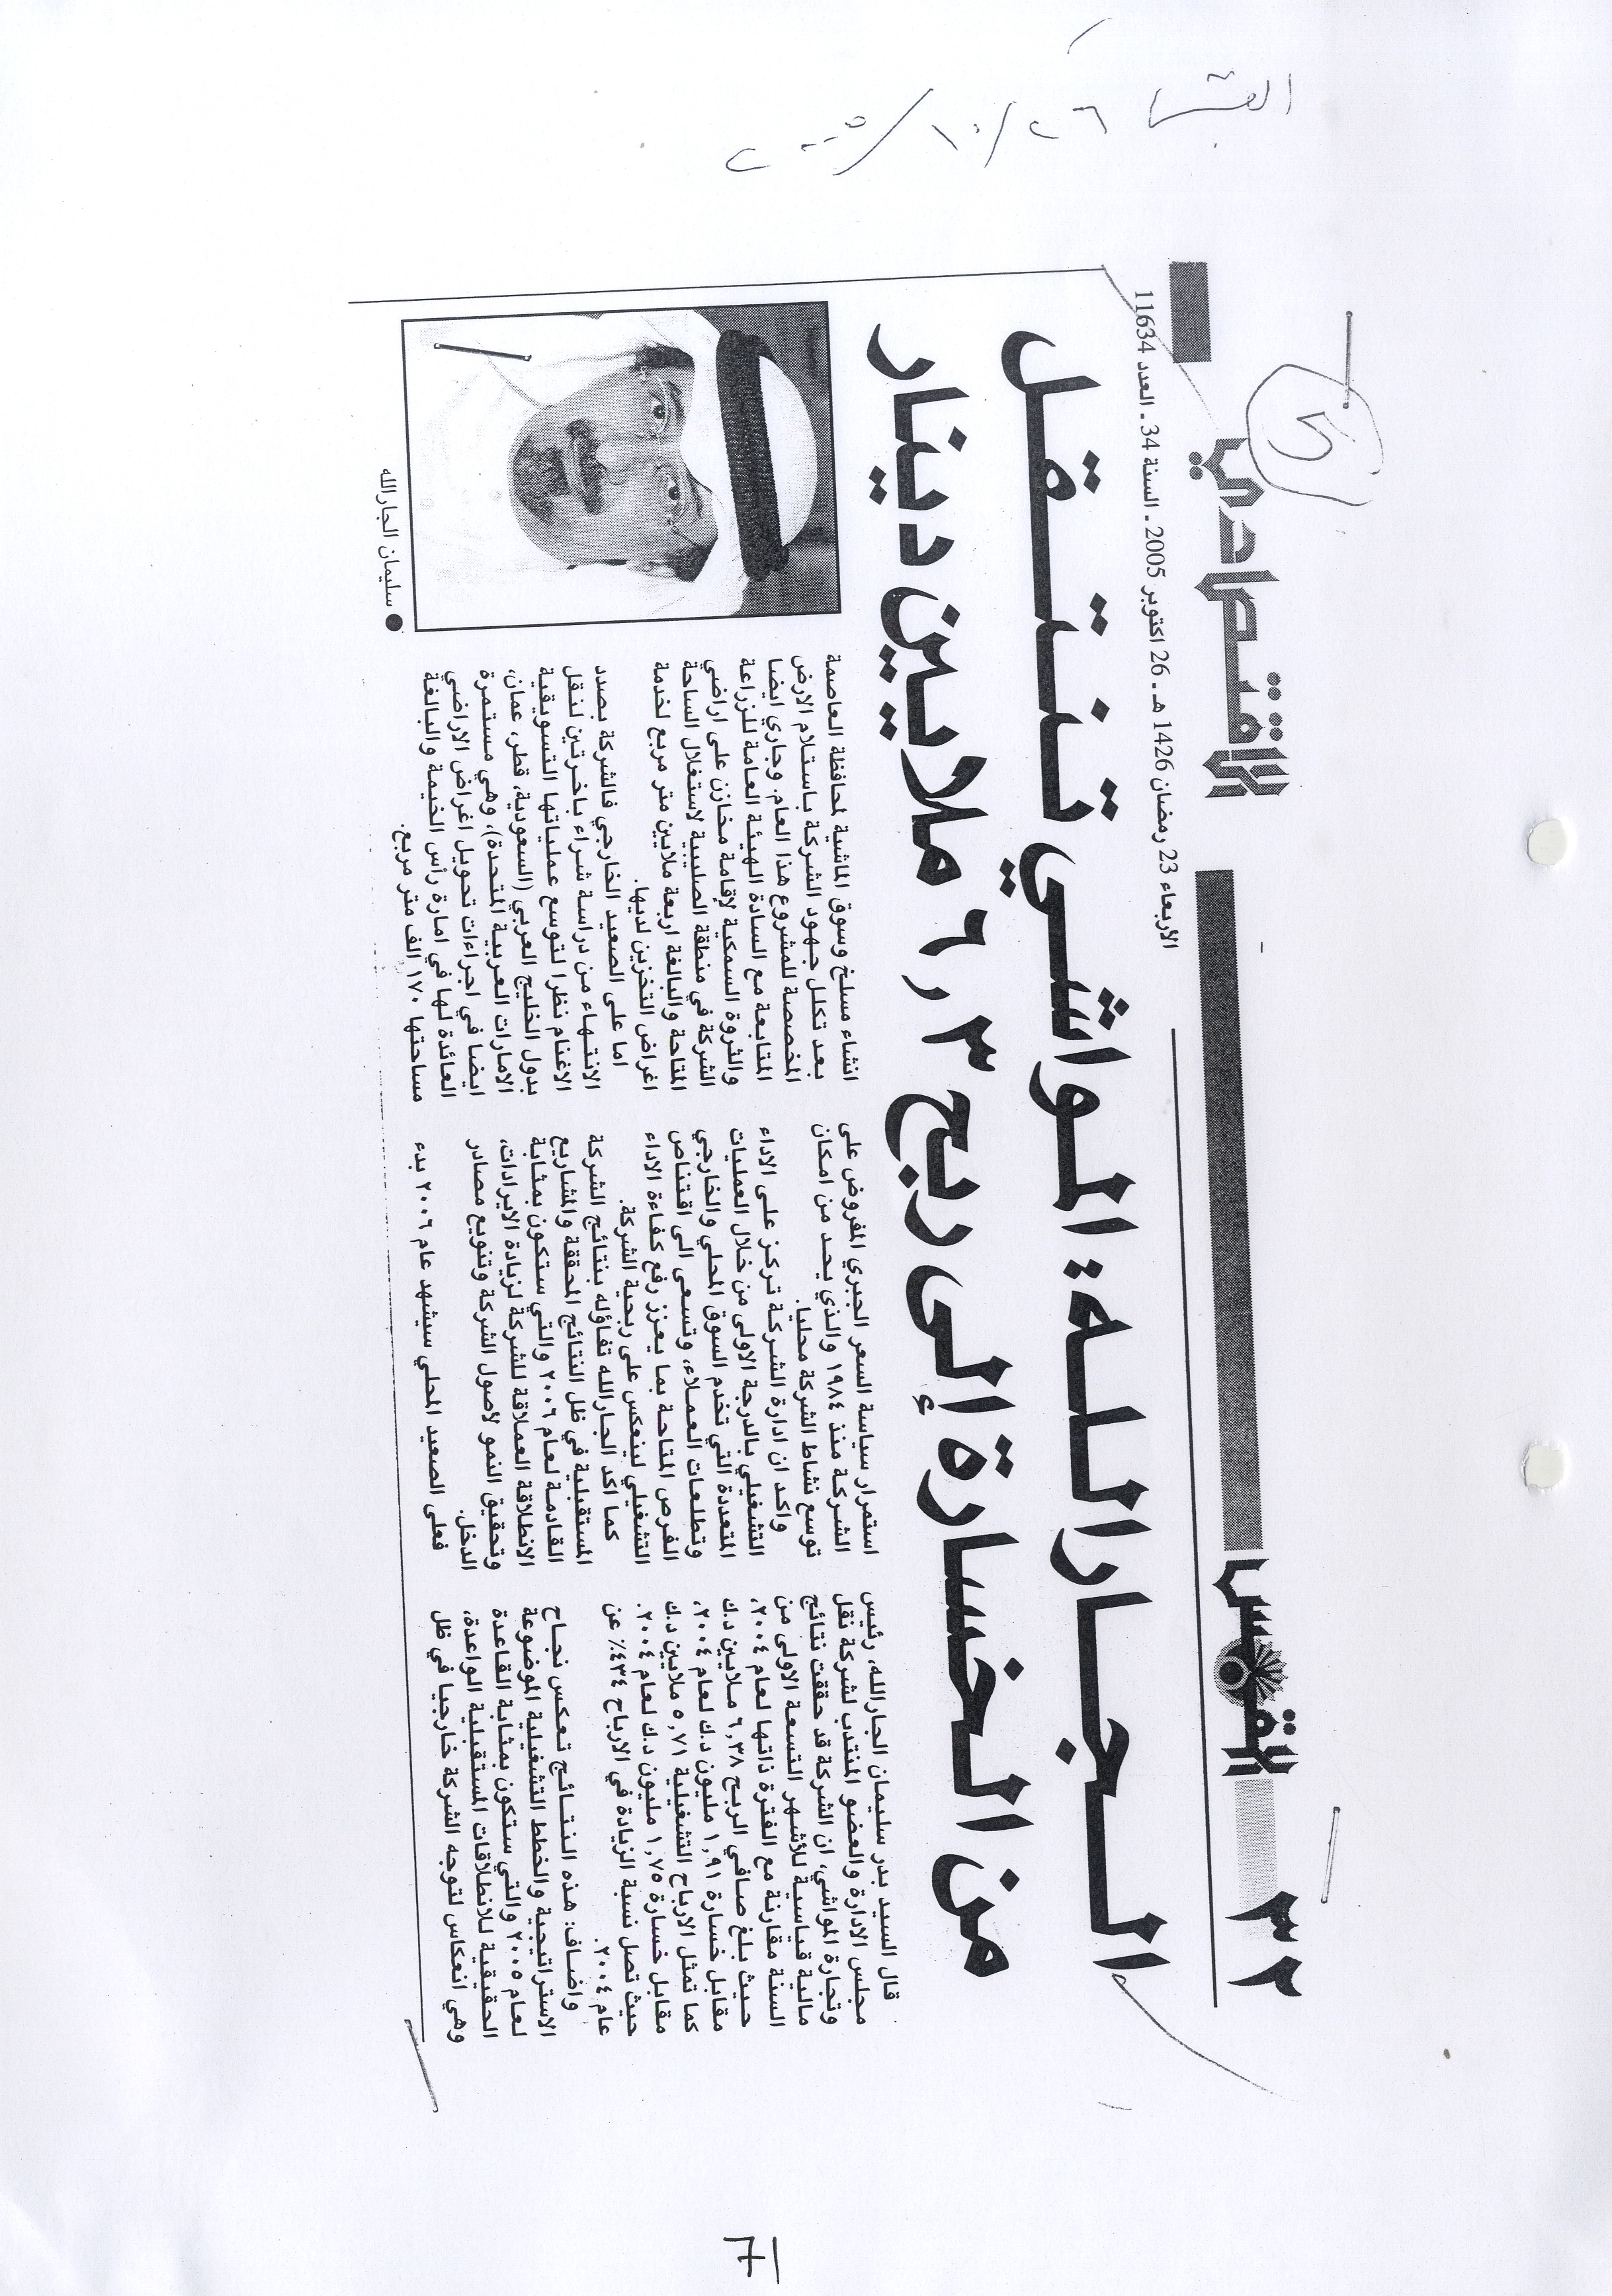 القبس ٢٦/١٠/٢٠٠٥
٣٢
القبس
الاقتصادي
الأربعاء 23 رمضان 1426 هـ ـ 26 اكتوبر 2005 ـ السنة 34 ـ العدد 11634
الجارالله: المواشي تنتقل
من الخسارة إلى ربح ٦٫٣ ملايين دينار
قال السيد بدر سليمان الجارالله، رئيس
مجلس الادارة والعضو المنتدب لشركة نقل
وتجارة المواشي، ان الشركة قد حققت نتائج
مالية قياسية للأشهر التسعة الاولى من
السنة مقارنة مع الفترة ذاتها لعام ٢٠٠٤،
حيث بلغ صافي الربح ٦,٣٨ ملايين د.ك
مقابل خسارة ١,٩١ مليون د.ك لعام ٢٠٠٤،
كما تمثل الارباح التشغيلية ٥,٧١ ملايين د.ك
مقابل خسارة ١,٧٥ مليون د.ك لعام ٢٠٠٤.
حيث تصل نسبة الزيادة في الارباح ٤٣٤٪ عن
عام ٢٠٠٤.
واضاف: هذه النتائج تعكس نجاح
الاستراتيجية والخطط التشغيلية الموضوعة
لعام ٢٠٠٥ والتي ستكون بمثابة القاعدة
الحقيقية للانطلاقات المستقبلية الواعدة،
وهي انعكاس لتوجه الشركة خارجيا في ظل
استمرار سياسة السعر الجبري المفروض على
الشركة منذ ١٩٨٤ والذي يحد من امكان
توسع نشاط الشركة محليا.
واكد ان ادارة الشركة تركز على الاداء
التشغيلي بالدرجة الاولى من خلال العمليات
المتعددة التي تخدم السوق المحلي والخارجي
وتطلعات العملاء، وتسعى الى اقتناص
الفرص المتاحة بما يعزز رفع كفاءة الاداء
التشغيلي لينعكس على ربحية الشركة.
كما اكد الجارالله تفاؤله بنتائج الشركة
المستقبلية في ظل النتائج المحققة والمشاريع
القادمة لعام ٢٠٠٦ والتي ستكون بمثابة
الانطلاقة العملاقة للشركة لزيادة الايرادات،
وتحقيق النمو لأصول الشركة وتنويع مصادر
الدخل.
فعلى الصعيد المحلي سيشهد عام ٢٠٠٦ بدء
انشاء مسلخ وسوق الماشية لمحافظة العاصمة
بعد تكلل جهود الشركة باستلام الارض
المخصصة للمشروع هذا العام. وجاري ايضا
المتابعة مع السادة الهيئة العامة للزراعة
والثروة السمكية لإقامة مخازن على اراضي
الشركة في منطقة الصليبية لاستغلال الساحة
المتاحة والبالغة اربعة ملايين متر مربع لخدمة
اغراض التخزين لديها.
اما على الصعيد الخارجي فالشركة بصدد
الانتهاء من دراسة شراء باخرتين لنقل
الاغنام نظرا لتوسع عملياتها التسويقية
بدول الخليج العربي (السعودية، قطر، عمان،
الامارات العربية المتحدة)، وهي مستمرة
ايضا في اجراءات تحويل اغراض الاراضي
العائدة لها في امارة رأس الخيمة والبالغة
مساحتها ١٧٠ الف متر مربع.
● سليمان الجارالله